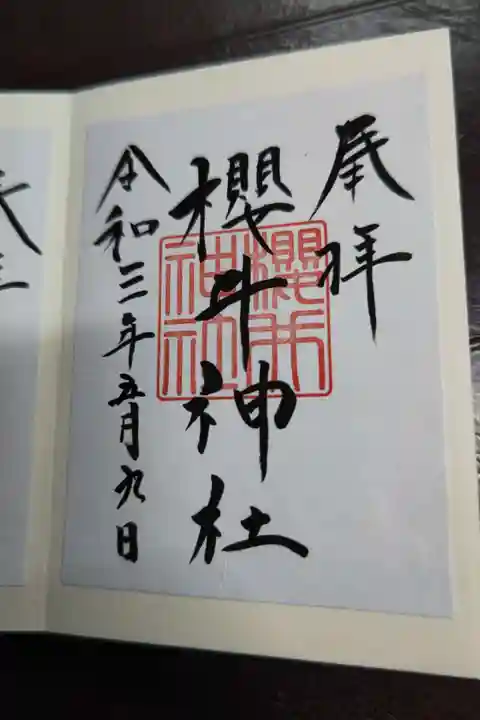 奉拝
櫻井神社
令和三年五月九日
櫻井
神社